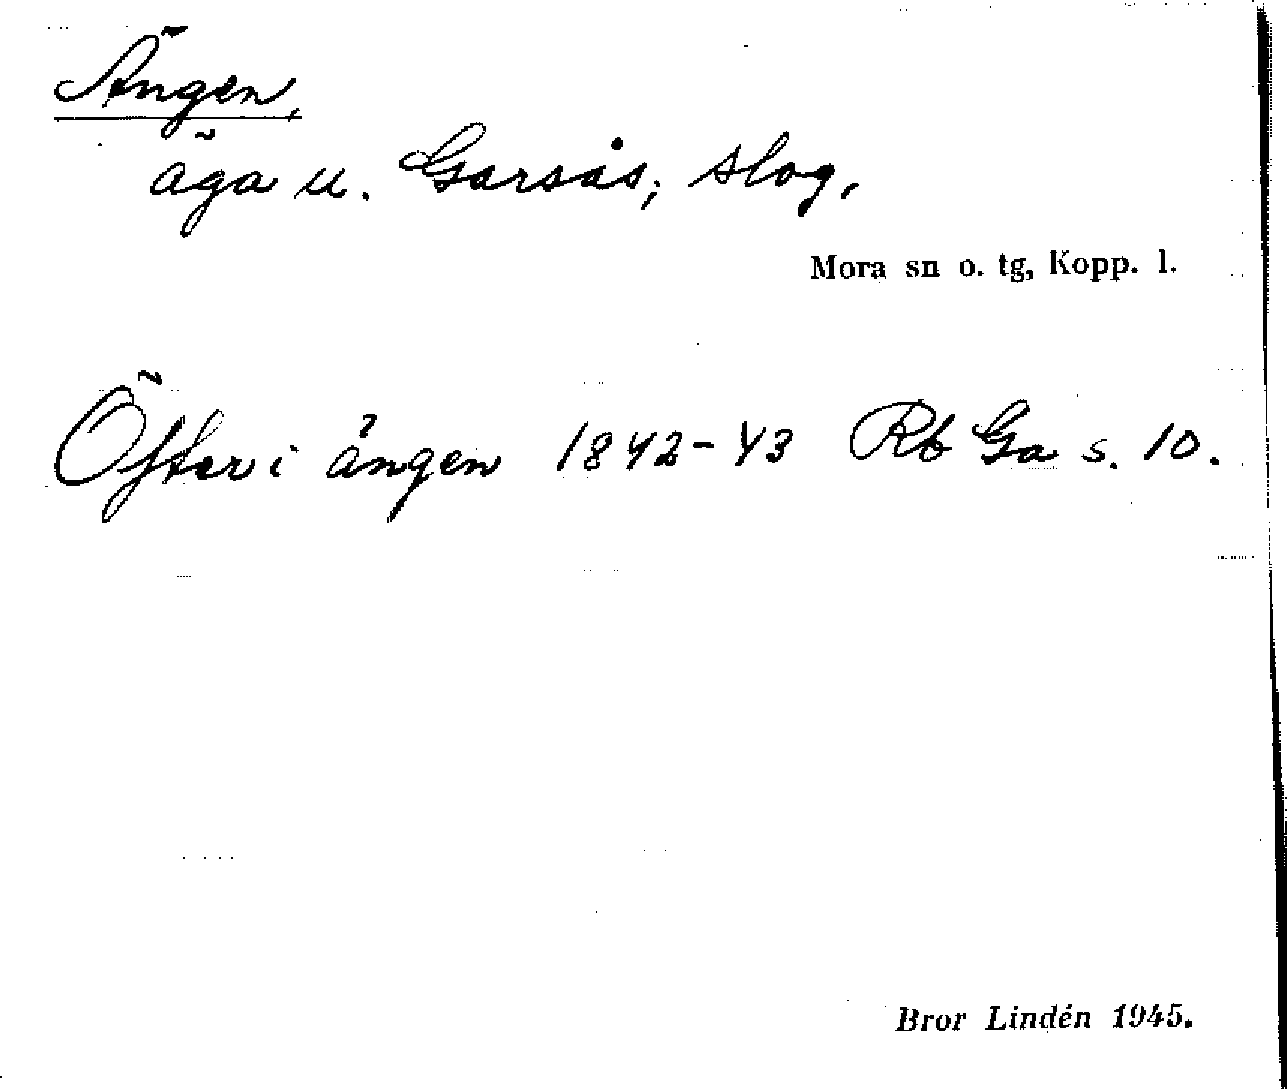 Ängen,
äga u. Garsås; slog,
Mora sn o. tg, Kopp. l.
Öfter i ängen 1842-43 Rb Ga s. 10.
Bror Lindén 1945.